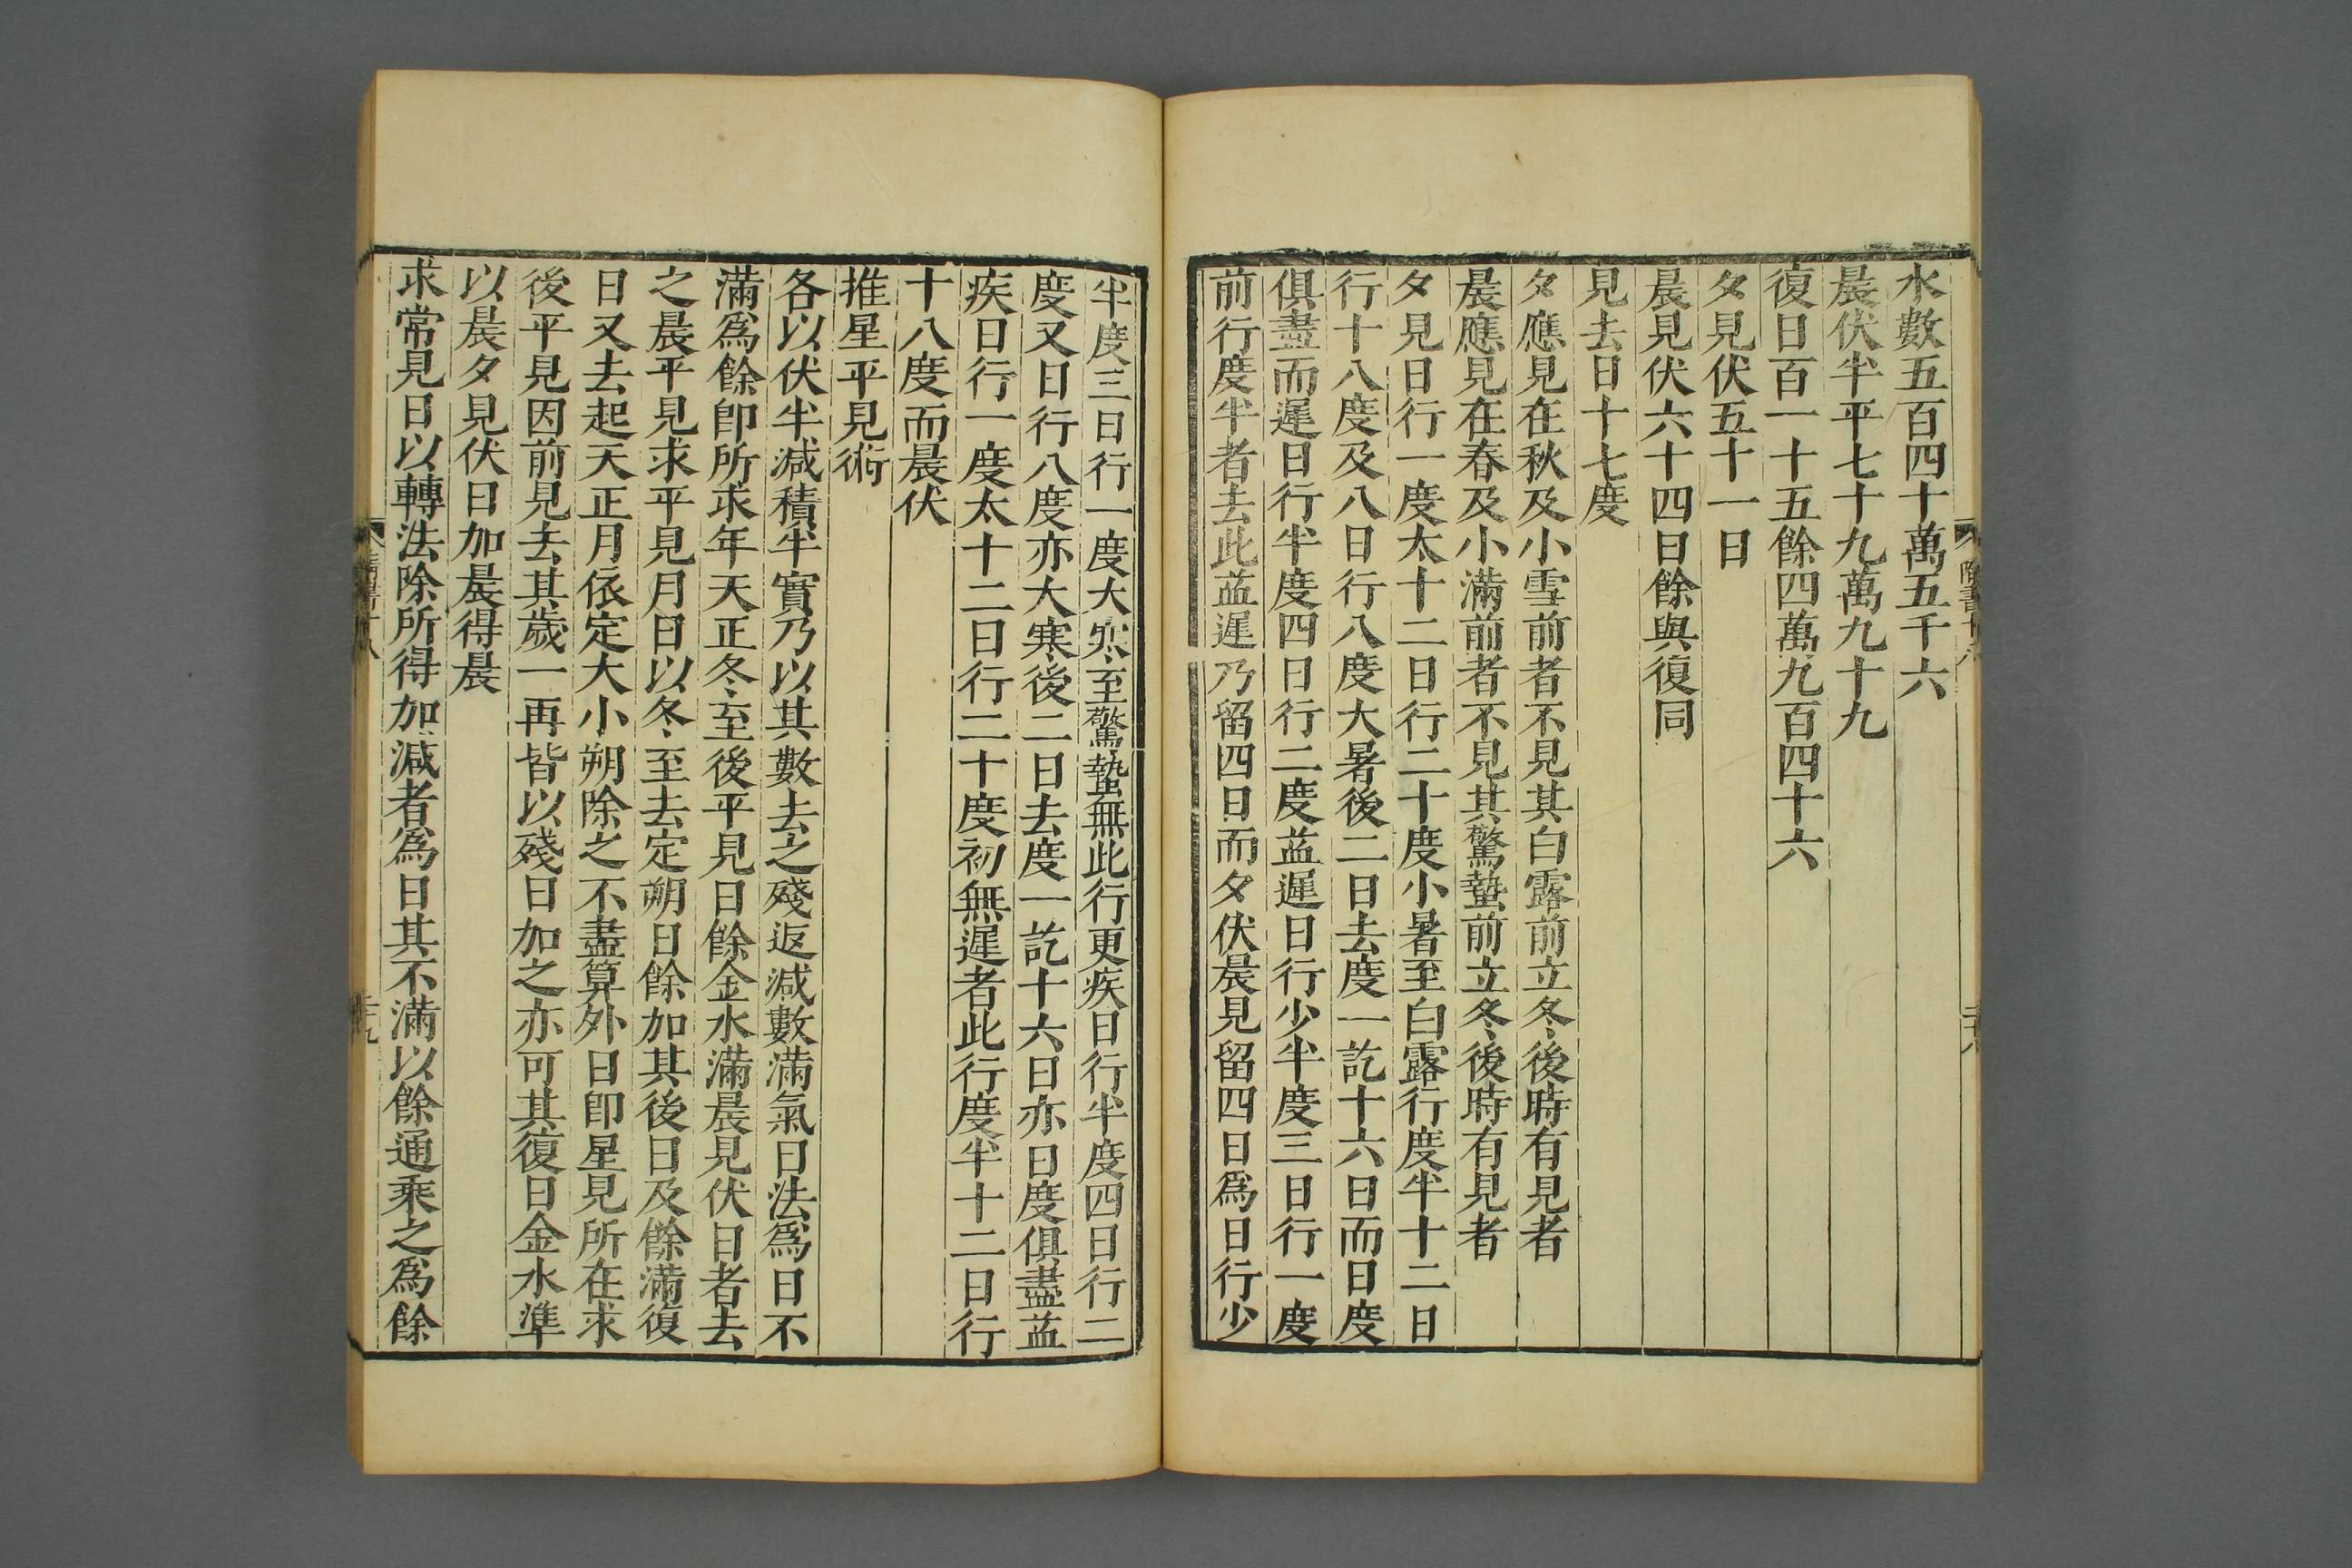 水數五百四十萬五千六
晨伏半平七十九萬九十九
復日百一十五餘四萬九百四十六
夕見伏五十一日
晨見伏六十四日餘與復同
見去日十七度
夕應見在秋及小雪前者不見其白露前立冬後時有見者
晨應見在春及小滿前者不見其驚蟄前立冬後時有見者
夕見日行一度太十二日行二十度小暑至白露行度半十二日
行十八度及八日行八度大暑後二日去度一訖十六日而日度
俱盡而遲日行半度四日行二度益遲日行少半度三日行一度
前行度半者去此益遲乃留四日而夕伏晨見留四日爲日行少
半度三日行一度大寒至驚蟄無此行更疾日行半度四日行二
度又日行八度亦大寒後二日去度一訖十六日亦日度俱盡益
疾日行一度太十二日行二十度初無遲者此行度半十二日行
十八度而晨伏
推星平見術
各以伏半減積半實乃以其數去之殘返減數滿氣日法爲日不
滿爲餘卽所求年天正冬至後平見日餘金水滿晨見伏日者去
之晨平見求平見月日以冬至去定朔日餘加其後日及餘滿復
日又去起天正月依定大小朔除之不盡算外日卽星見所在求
後平見因前見去其歲一再皆以殘日加之亦可其復日金水準
以晨夕見伏日加晨得晨
求常見日以轉法除所得加減者爲日其不滿以餘通乘之爲餘
隋書十八